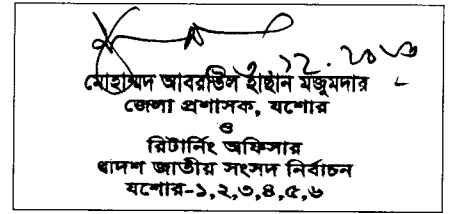 ৩.১২.২০২৩
মোহাম্মদ আবরাউল হাছান মজুমদার
জেলা প্রশাসক, যশোর
ও
রিটার্নিং অফিসার
দ্বাদশ জাতীয় সংসদ নির্বাচন
যশোর-১,২,৩,৪,৫,৬